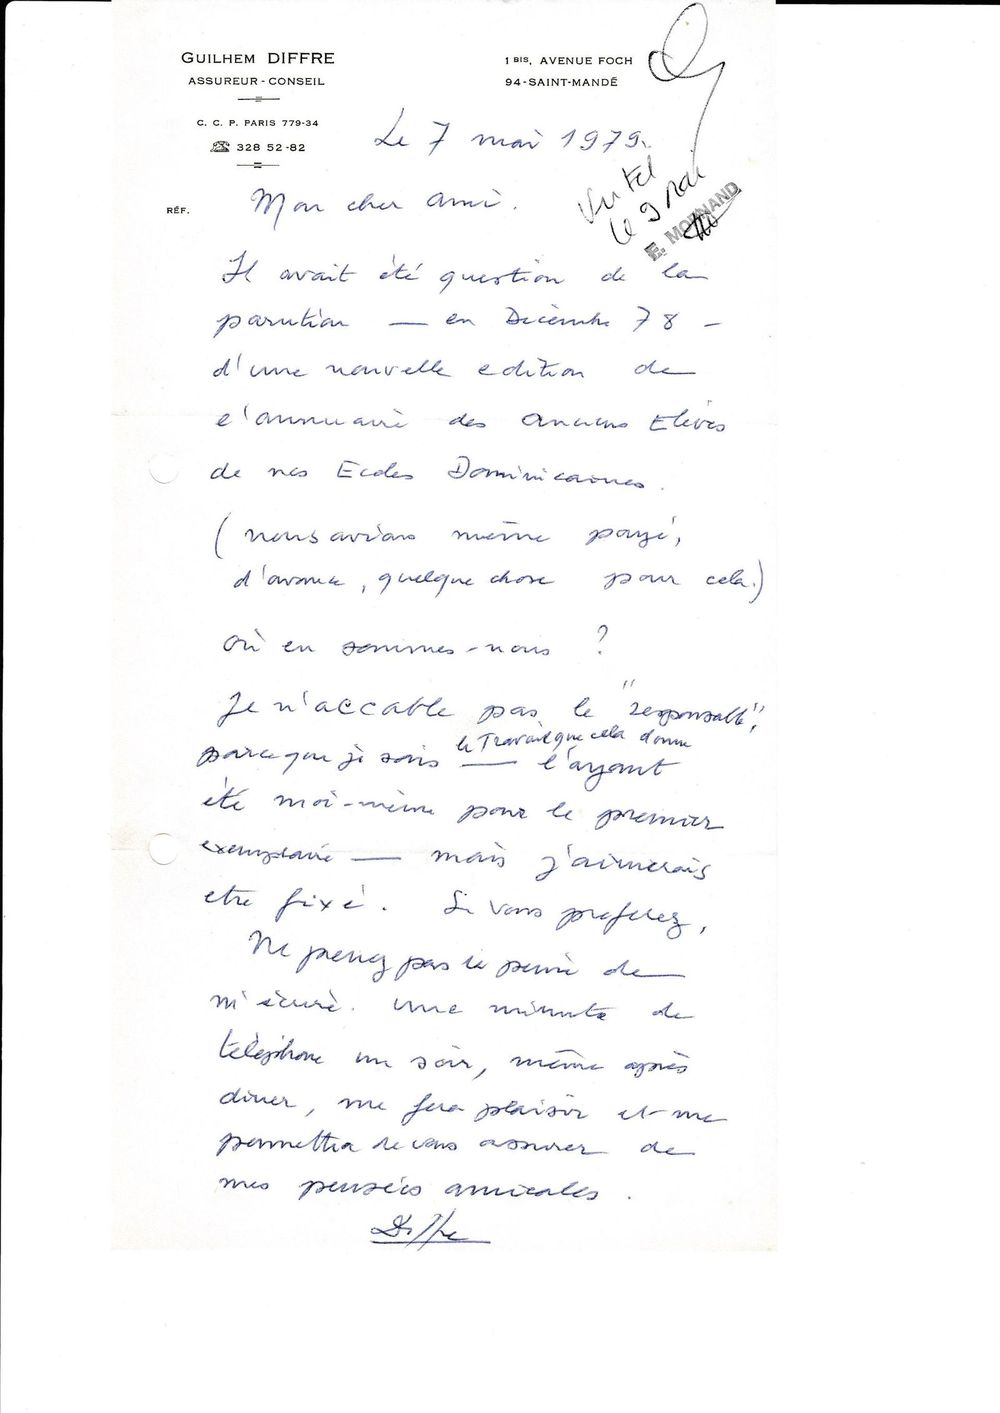 GUILHEM DIFFRE
ASSUREUR-CONSEIL
C. C. P. PARIS 779-34
☎ 328 52-82
1 BIS, AVENUE FOCH
94-SAINT-MANDÉ
Le 7 mai 1979.
Vu tel
le 9 mai
E. MORNAND
RÉF.
Mon cher ami.
Il avait été question de la
parution — en Décembre 78 —
d'une nouvelle edition de
l'annuaire des Anciens Elèves
de nos Ecoles Dominicaines.
(nous avions même payé,
d'avance, quelque chose pour cela.)
où en sommes-nous ?
Je n'accable pas le "responsable",
le Travail que cela donne
parce que je sais — l'ayant
été moi-même pour le premier
exemplaire — mais j'aimerais
etre fixé. Si vous preferez,
Ne prenez pas la peine de
m'écrire. Une minute de
téléphone un soir, même après
diner, me fera plaisir et me
permettra de vous assurer de
mes pensées amicales.
Diffre